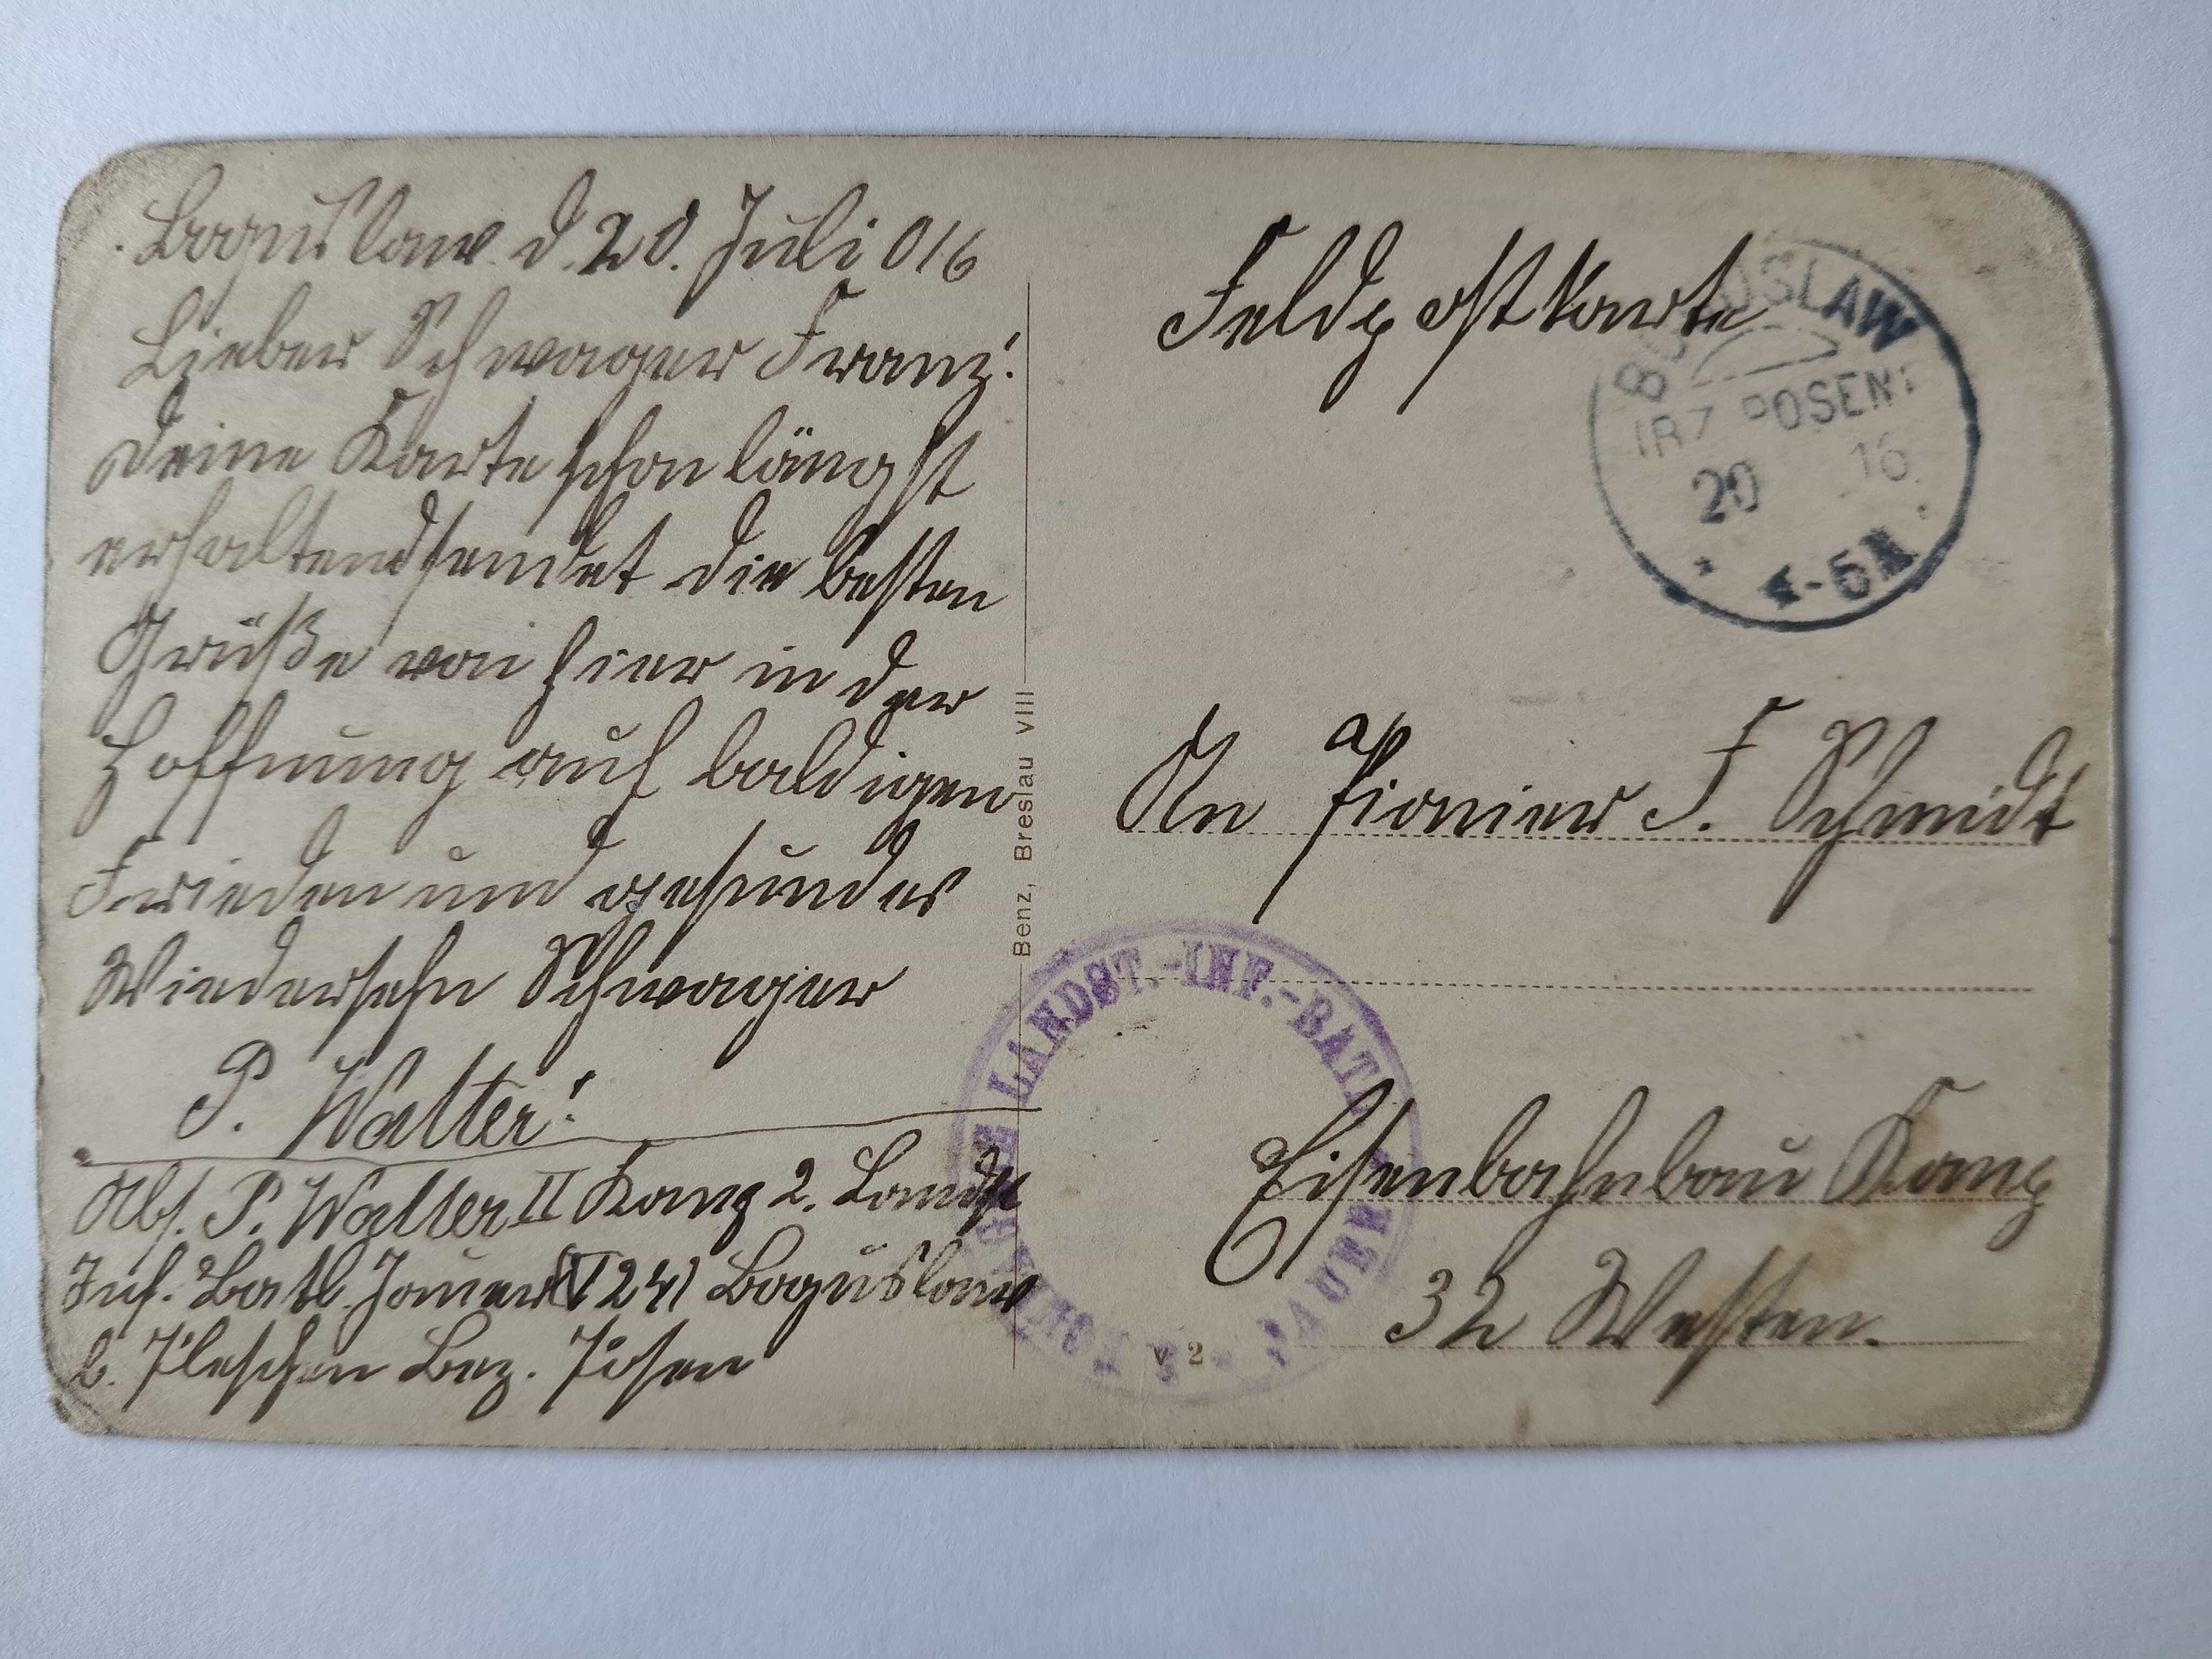 Boguslaw d. 20. Juli 016
Lieber Schwager Franz!
Deine Karte schon längst
erhaltend sendet die besten
Grüße von hier in der
Hoffnung auf baldigen
Frieden und gesundes
Wiedersehn Schwager
P. Walter!
Abs. P. Walter II Komp 2. Landst
Inf. Batl. Jauer VI 241 Boguslaw
b. Pleschen Bez. Posen
Benz, Breslau VIII
Feldpostkarte
BOGUSLAW
(BZ. POSEN)
20 16
4-5N
An Pionier F. Schmidt
LANDST.-INF.-BATL.
JAUER
Eisenbahnbau Komp
32 Westen.
V 2